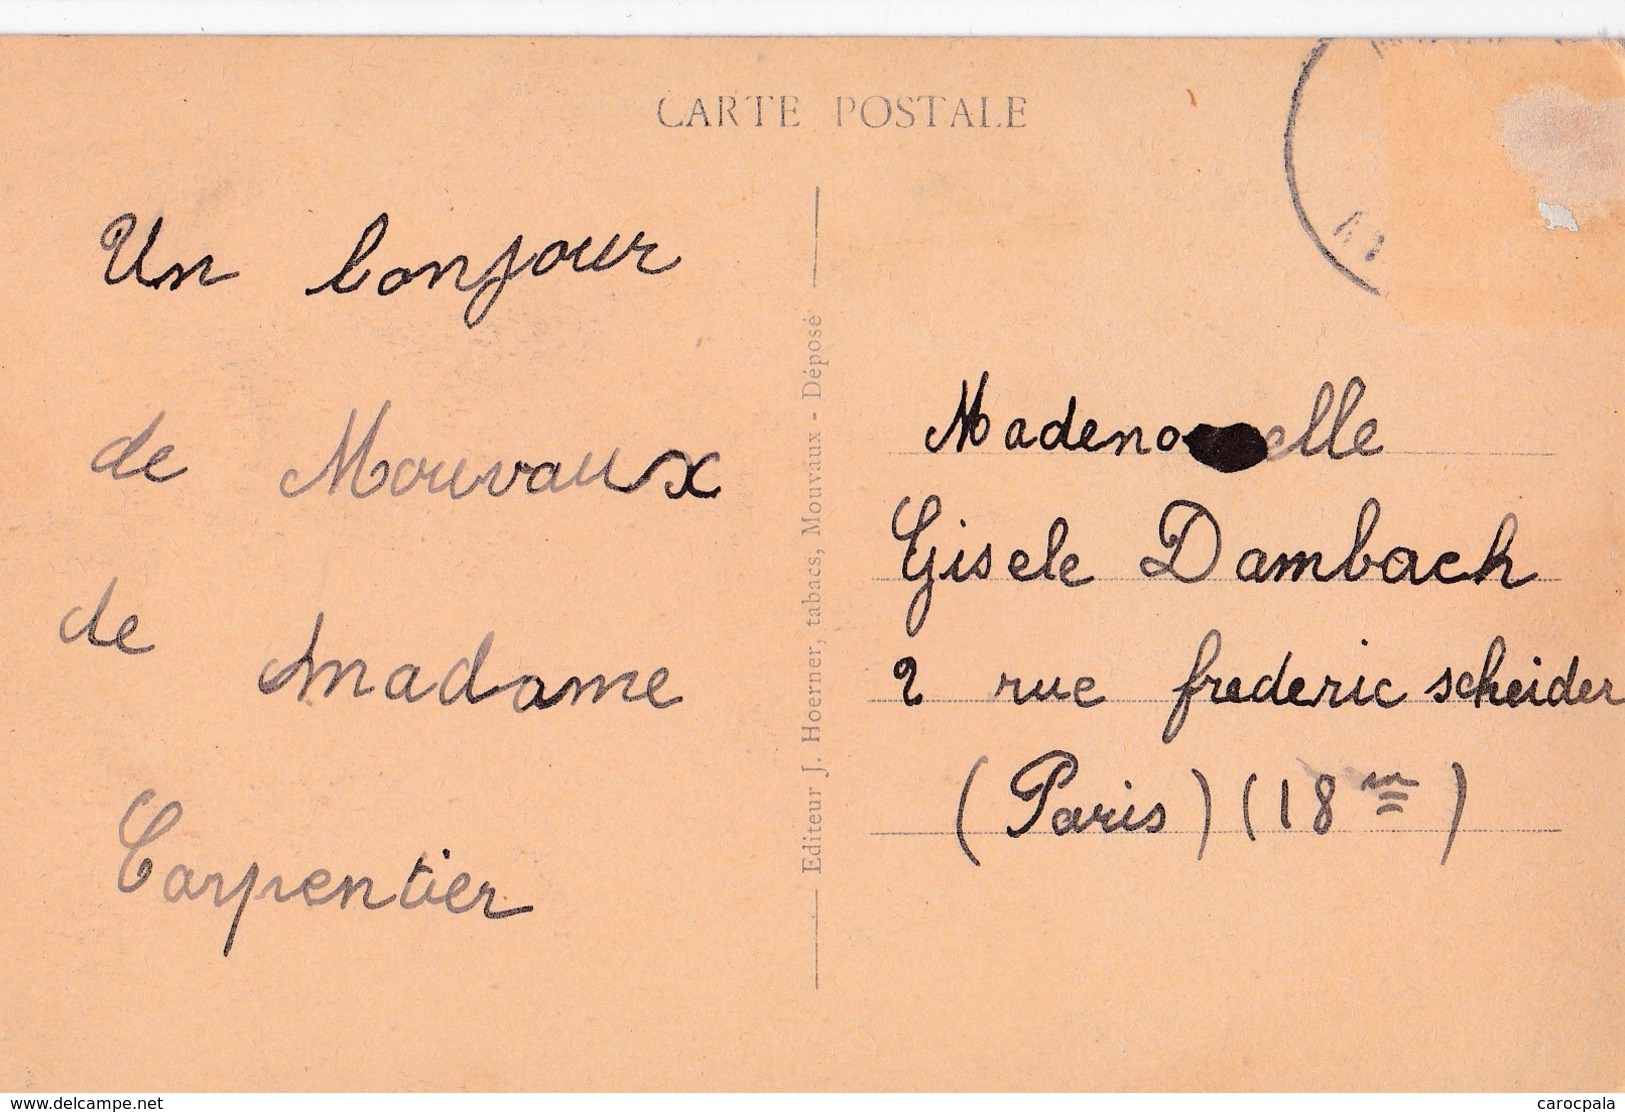 CARTE POSTALE
Un bonjour
de Mouvaux
de madame
Carpentier
Editeur J. Hoerner, tabacs, Mouvaux - Déposé
Gisele Dambach
2 rue frederic scheider
(Paris) (18 m)
www.delcampe.net
carocpala